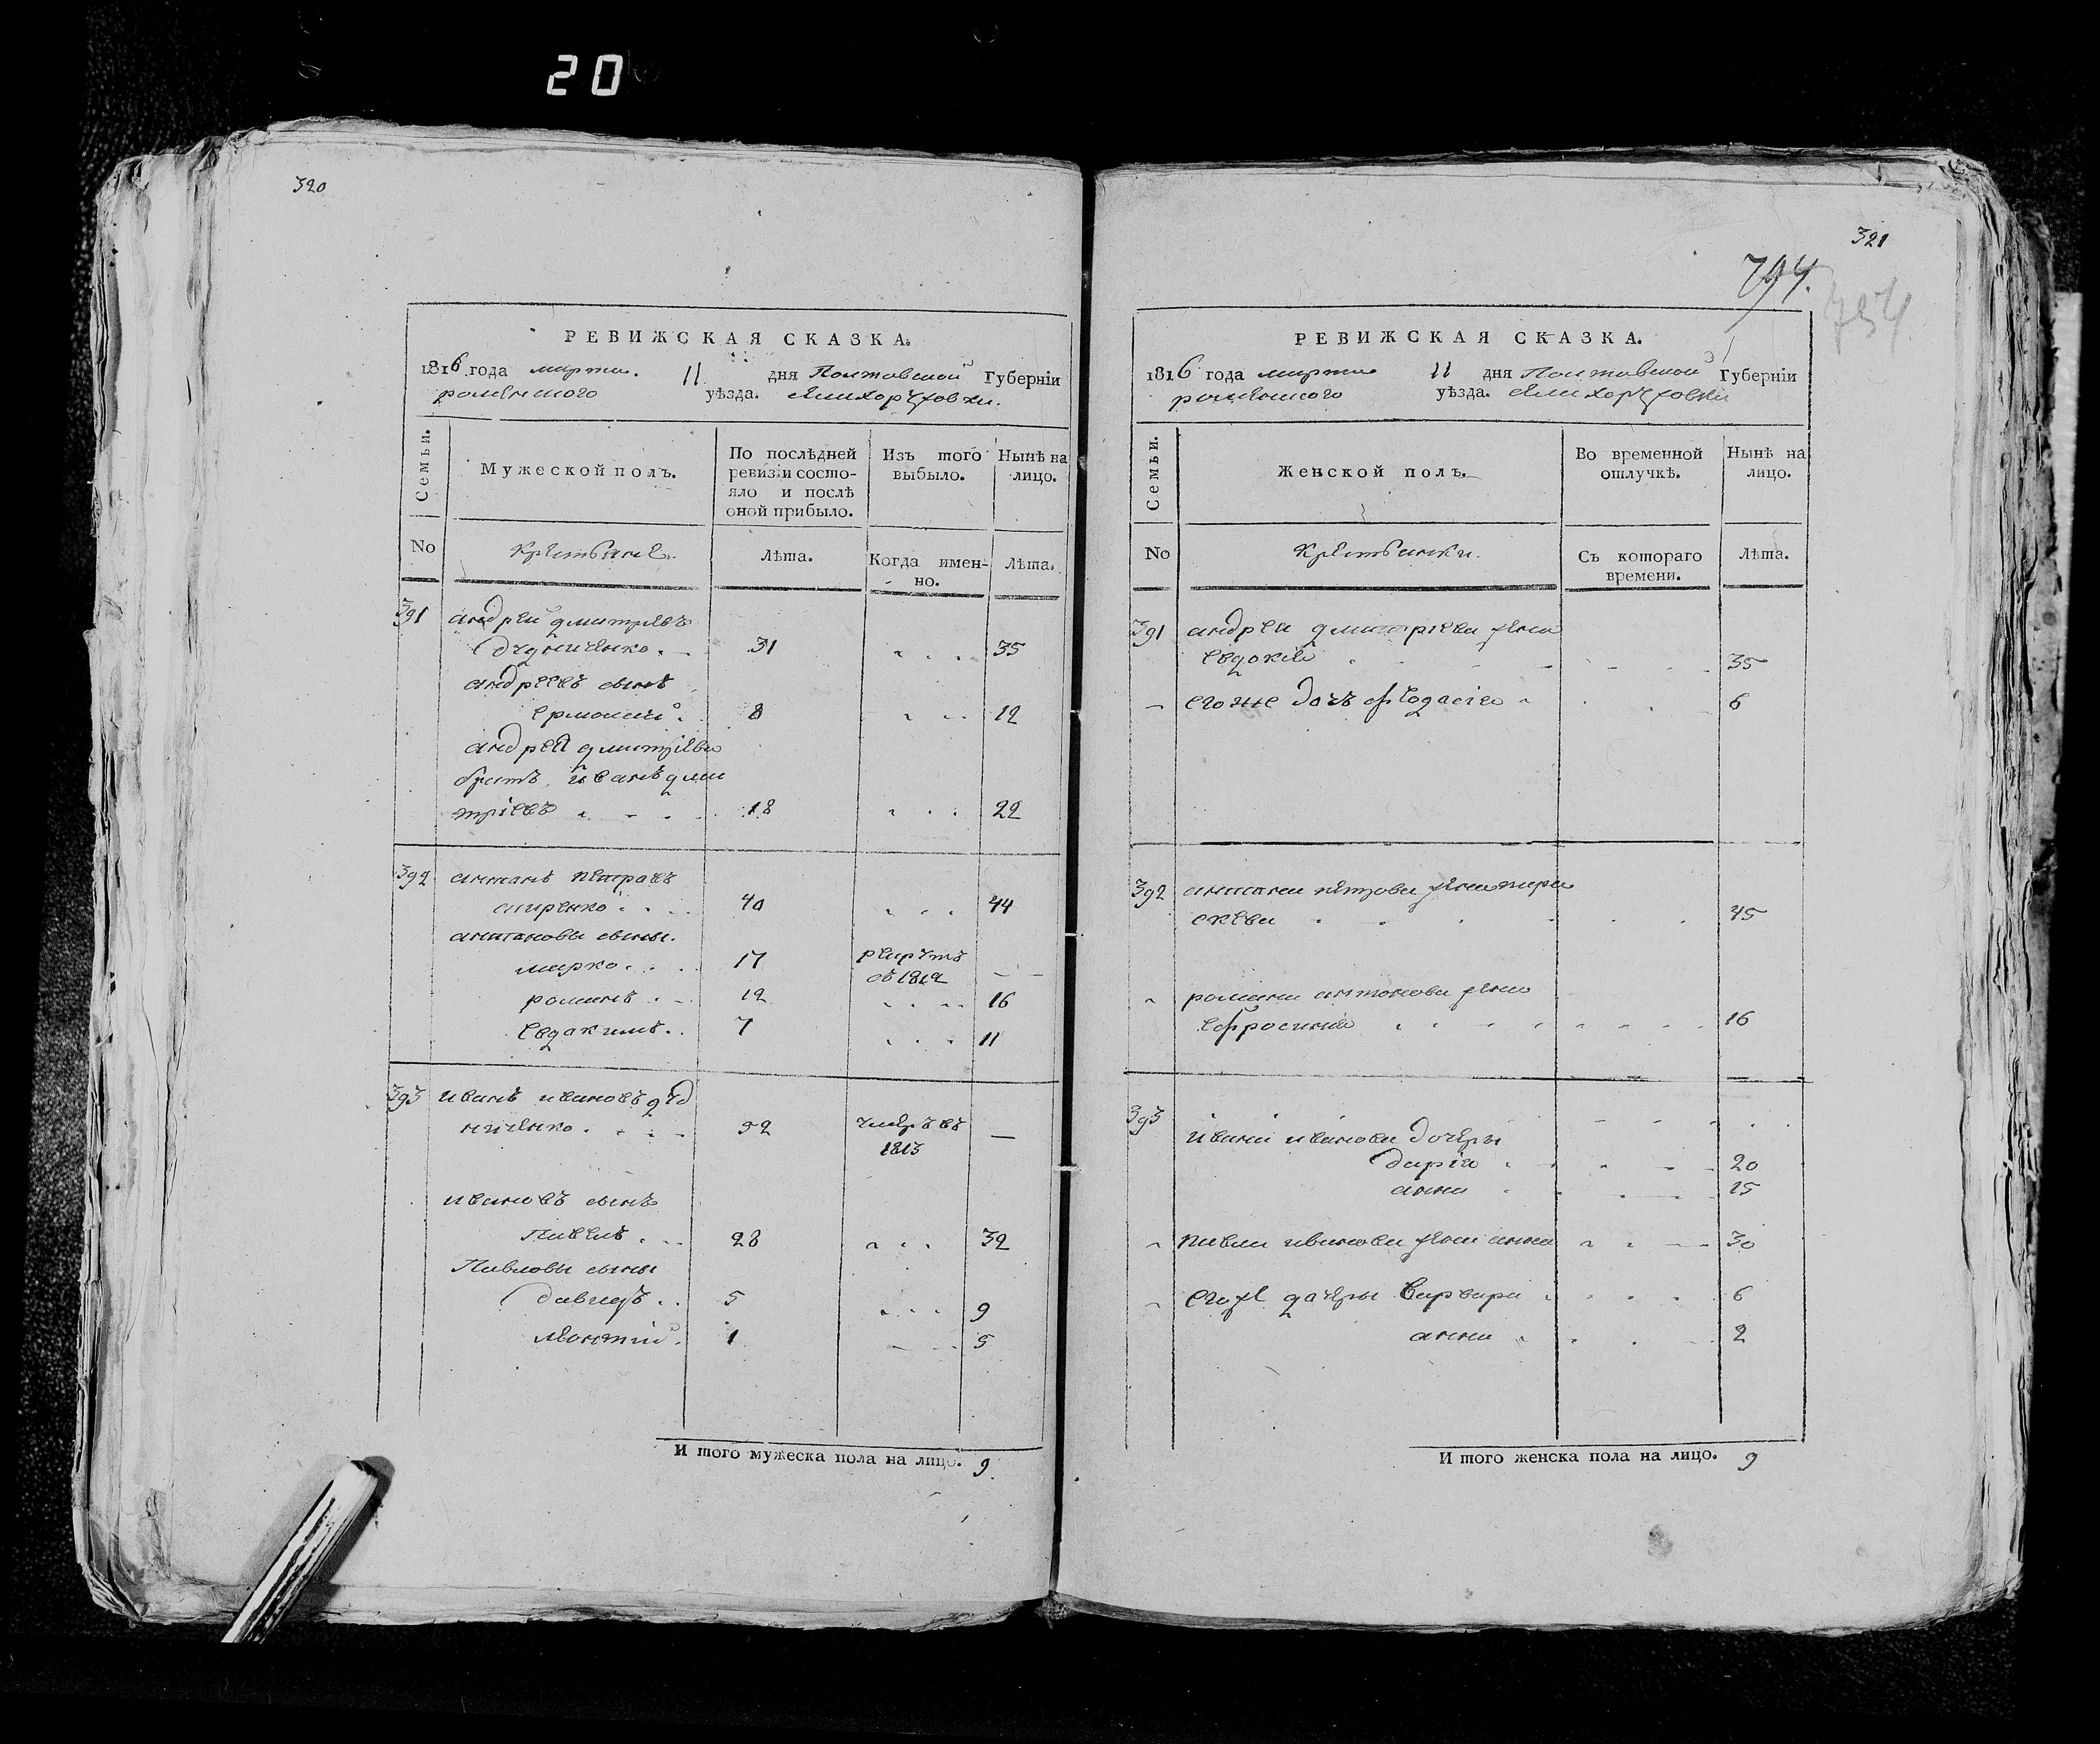 20
320
РЕВИЖСКАЯ СКАЗКА.
1816 года марта. 11 дня Полтавской Губерніи
роменского уѣзда.
Семьи.
Мужеской полъ.
По послѣдней ревизіи состояло и послѣ оной прибыло.
Изъ того выбыло.
Нынѣ на лицо.
No
Крестьяне.
Лѣта.
Когда именно.
Лѣта.
391 андрей дмитрiевъ
31 35
андреевъ сынъ
ермолай 8 12
андрея дмитрiева
братъ иванъ дми
трiевъ 18 22
392 антонъ петровъ
40 44
антоновы сыны.
марко 17
1812
романъ 12 16
евдокимъ 7 11
393 иванъ ивановъ дѣд
ниченко 52 умеръ въ —
1813
ивановъ сынъ
Павелъ 28 32
Павловы сыны
давидъ 5 9
леонтiй 1 5
И того мужеска пола на лицо. 9
321
794.
754
РЕВИЖСКАЯ СКАЗКА.
1816 года марта 11 дня Полтавской Губерніи
роменского уѣзда.
Семьи.
Женской полъ.
Во временной отлучкѣ.
Нынѣ на лицо.
No
Крестьянки.
Съ котораго времени.
Лѣта.
391 андрея дмитрiева жена
евдокiя 35
его же дочь феодосiя 6
392 антона петрова жена пара
скева 45
романа антонова жена
ефросинiя 16
393
ивана иванова дочери
дарiя 20
анна 15
павла иванова жена анна 30
его же дочери варвара 6
анна 2
И того женска пола на лицо. 9